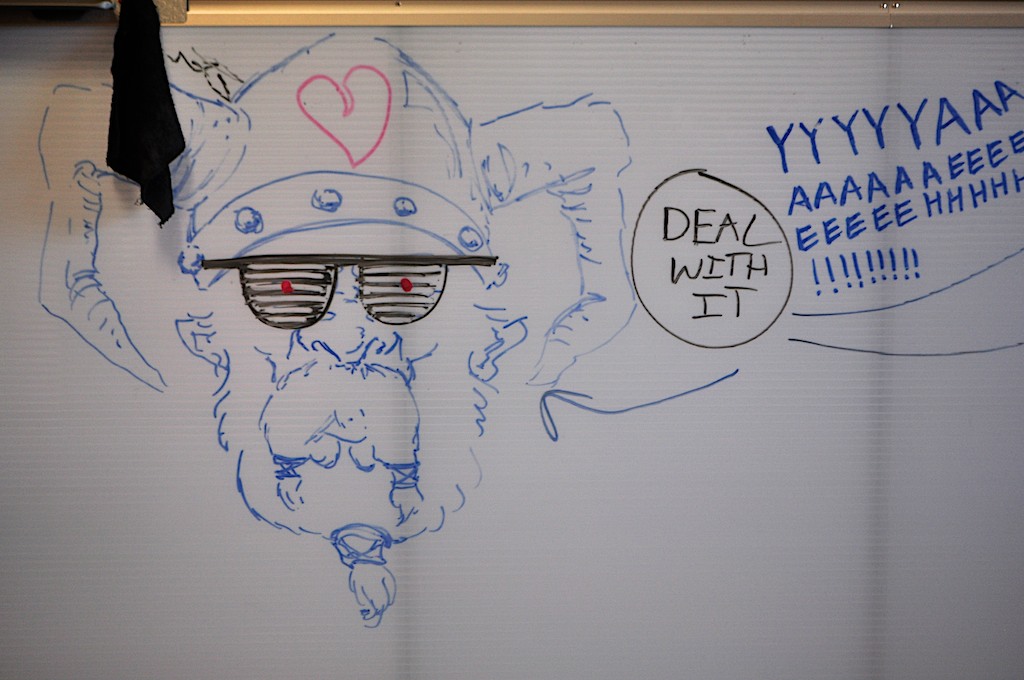 DEAL
WITH
IT
YYYYYAAA
AAAAAAEEEE
EEEEEHHHHH
!!!!!!!!!